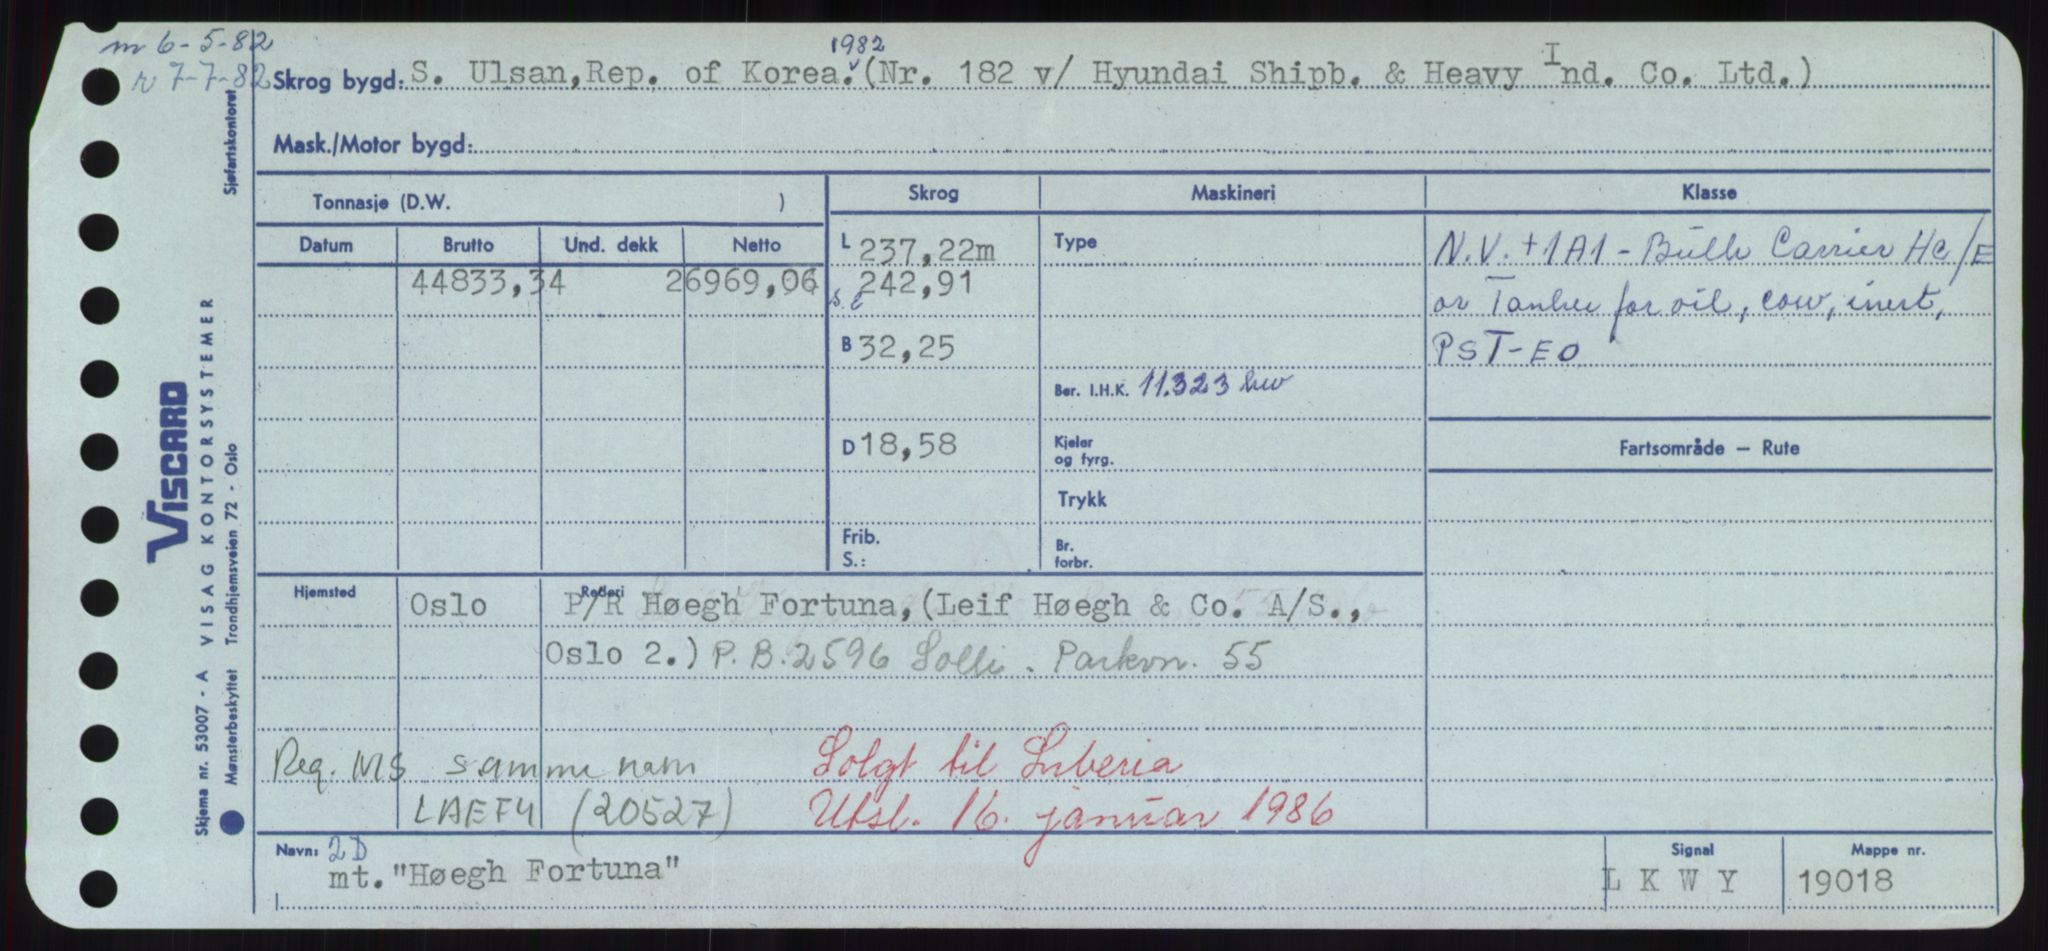 m 6-5-82
r 7-7-82
1982
Skrog bygd: S. Ulsan, Rep. of Korea. v (Nr. 182 v/ Hyundai Shipb. & Heavy Ind. Co. Ltd.)
Mask./Motor bygd:
Tonnasje (D.W. )
Skrog Maskineri Klasse
Datum Brutto Und. dekk Netto
44833,34 26969,06
L 237,22m
s.l 242,91
B 32,25
D 18,58
Frib.
S.:
Type
Ber. I.H.K. 11.323 kw
Kjeler
og fyrg.
Trykk
Br.
forbr.
N.V. +1A1 - Bulk Carrier Hc/E
or Tanker for oil, cow, inert,
PST-EO
Fartsområde — Rute
Hjemsted Oslo Rederi P/R Høegh Fortuna, (Leif Høegh & Co. A/S.,
Oslo 2.) P.B. 2596 Solli. Parkvn. 55
Reg. NIS samme navn
LAEF4 (20527)
Solgt til Liberia
Utsl. 16. januar 1986
Navn: 2D
mt. "Høegh Fortuna"
Signal
L K W Y
Mappe nr.
19018
Sjøfartskontoret
VISCARD
Skjema nr. 53007 - A VISAG KONTORSYSTEMER
Mønsterbeskyttet Trondhjemsveien 72 - Oslo